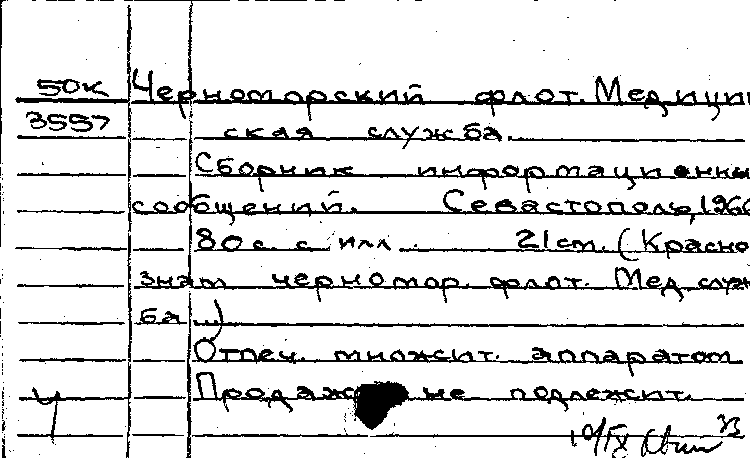 50К Черноморский флот. Медицин
3557 ская служба.
Сборник информационны
сообщений. Севастополь, 196
80 с. с илл. 21 cm. (Красно
знам черномор. флот. Мед служ
ба ..)
Отпеч. множит. аппаратом
Продаже не подлежит.
Ч
10/IX